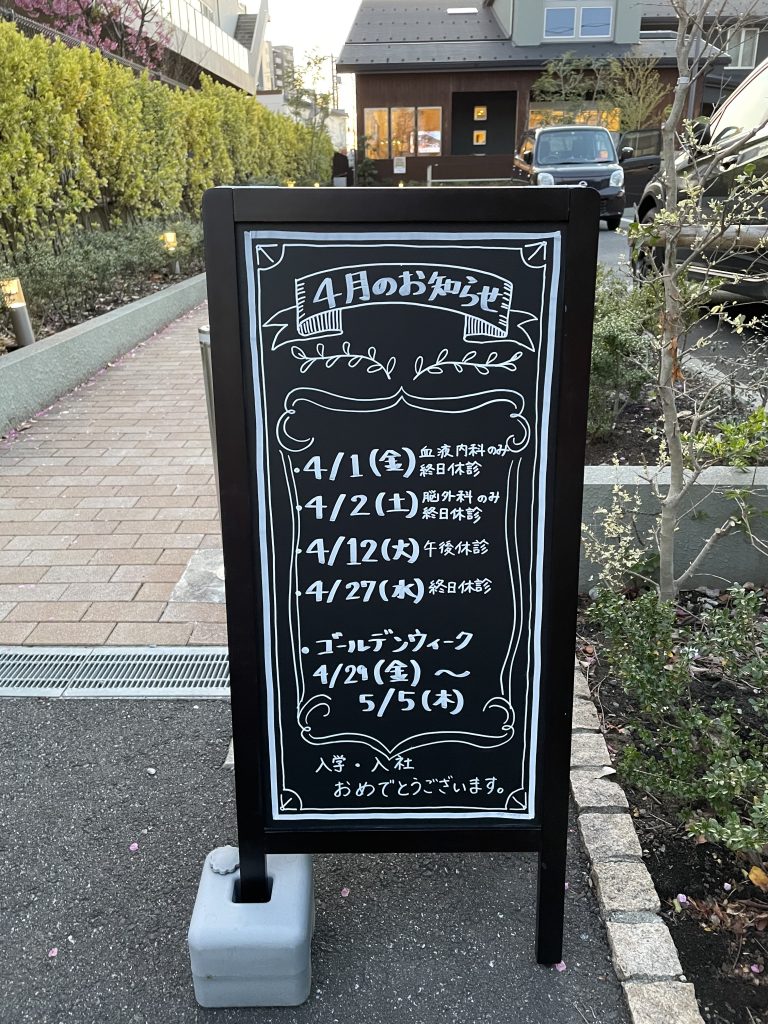 4月のお知らせ
・4/1(金) 血液内科のみ
終日休診
・4/2(土) 脳外科のみ
終日休診
・4/12(火) 午後休診
・4/27(水) 終日休診
・ゴールデンウィーク
4/29(金)〜
5/5(木)
入学・入社
おめでとうございます。